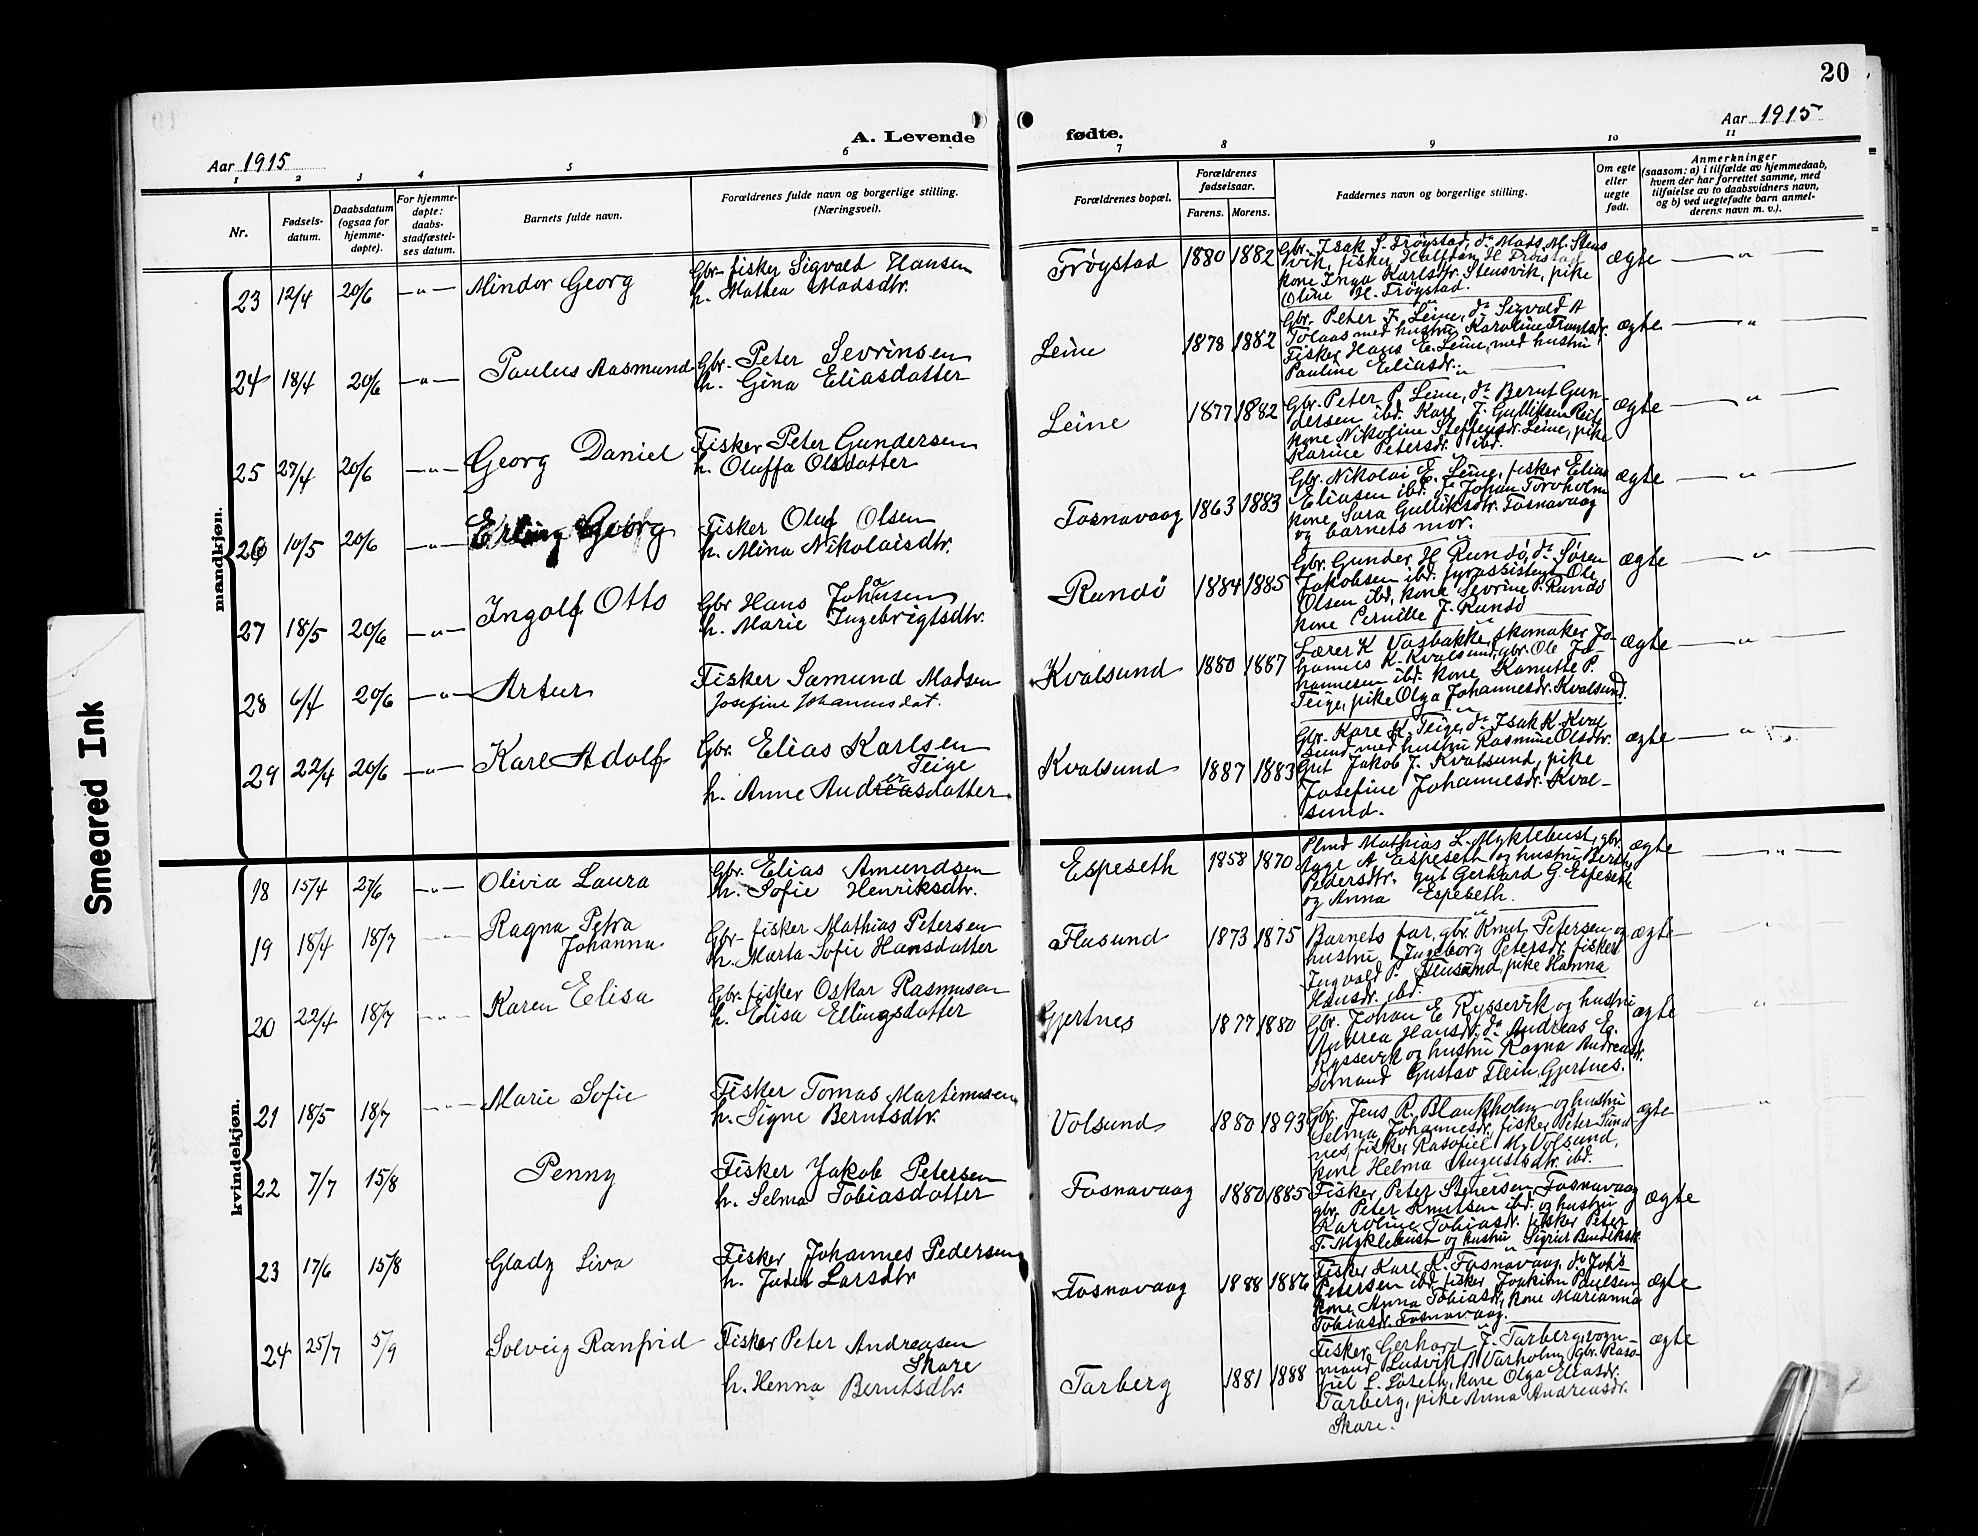 20
A. Levende fødte.
Aar 1915
Aar 1915
1 2 3 4 5 6 7 8 9 10 11
Nr.
Fødsels-
datum.
Daabsdatum
(ogsaa for
hjemme-
døpte).
For hjemme-
døpte:
daabs-
stadfæstel-
ses datum.
Barnets fulde navn.
Forældrenes fulde navn og borgerlige stilling.
(Næringsvei).
Forældrenes bopæl.
Forældrenes
fødselsaar.
Farens. Morens.
Faddernes navn og borgerlige stilling.
Om egte
eller
uegte
født.
Anmerkninger
(saasom: a) i tilfælde av hjemmedaab,
hvem der har forrettet samme, med
tilføielse av to daabsvidners navn,
og b) ved uegtefødte barn anmel-
derens navn m. v.).
mandkjøn.
23 12/4 20/6 —"— Mindor Georg
Gbr-fisker Sigvald Hansen
h. Mathea Madsdtr.
Frøystad 1880 1882
Gbr. Isak S. Frøystad, do Mads M. Stens
vik, fisker Halfdan H Frøistad
kone Inga Karlsdtr. Stensvik, pike
Oline H. Frøystad.
ægte —"—
24 18/4 20/6 —"— Paulus Rasmund
Gbr. Peter Sevrinsen
h. Gina Eliasdatter
Leine 1878 1882
Gbr. Peter J. Leine, do Sigvald A
Tolaas med hustru Karoline Frantsdr.
Fisker Hans E. Leine, med hustru
Pauline Eliasdr.
ægte —"—
25 27/4 20/6 —"— Georg Daniel
Fisker Peter Gundersen
h. Oluffa Olsdatter
Leine 1877 1882
Gbr. Peter P. Leine, do Bernt Gun-
dersen ibd. Karl J. Gulliksen Reit
kone Nikoline Steffensdr. Leine, pike
Karine Petersdr. ibd.
ægte —"—
26 10/5 20/6 —"— Erling Georg
Fisker Oluf Olsen
h. Alina Nikolaisdtr.
Fosnavaag 1863 1883
Gbr. Nikolai E. Leine, fisker Elias
Eliasen ibd. do Johan Torvholm
kone Sara Gulliksdtr. Fosnavaag
og barnets mor.
ægte —"—
27 18/5 20/6 —"— Ingolf Otto
Gbr Hans Johansen
h. Marie Ingebrigtsdtr.
Rundö 1884 1885
Gbr. Gunder H Rundö, do Søren
Jakobsen ibd. fyrassistent Ole
Olsen ibd, kone Sevrine P. Rundö
kone Pernille J. Rundö
ægte —"—
28 6/4 20/6 —"— Artur
Fisker Samund Madsen
Josefine Johannesdat.
Kvalsund 1880 1887
Lærer K Vasbakke, skomaker Jo-
hannes K. Kvalsund, gbr. Ole Jo-
hannesen ibd. kone Kanutte P.
Teige, pike Olga Johannesdr. Kvalsund.
ægte —"—
29 22/4 20/6 —"— Karl Adolf
Gbr. Elias Karlsen
Teige
h. Anne Andreasdatter
Kvalsund 1887 1883
Gbr. Kare K. Teige, do Isak K. Kval
sund med hustru Rasmine Olsdtr.
Gut Jakob J. Kvalsund, pike
Josefine Johannesdr. Kval-
sund.
ægte —"—
kvindekjøn.
18 15/4 27/6 —"— Olivia Laura
Gbr. Elias Amundsen
h. Sofie Henriksdtr.
Espeseth 1858 1870
Plmd Mathias L. Myklebust, gbr.
Aage A Espeseth og hustru Berthe
Pedersdtr. gut Gerhard G. Espeseth
og Anna Espeseth.
ægte —"—
19 18/4 18/7 —"— Ragna Petra
Johanna
Gbr-fisker Mathias Petersen
h. Marta Sofie Hansdatter
Flusund 1873 1875
Barnets far, gbr. Knut Petersen og
hustru Ingeborg Petersdr. fisker
Ingvald P. Flusund, pike Hanna
Hansdr. ibd.
ægte "
20 22/4 18/7 —"— Karen Elisa
Gbr. fisker Oskar Rasmusen
h. Elisa Ellingsdatter
Gjertnes 1877 1880
Gbr. Johan E Ryssevik og hustru
Andrea Hansdr. do Andreas E.
Ryssevik og hustru Ragna Andreasdr.
Sømand Gustav Flein, Gjertnes.
ægte "
21 18/5 18/7 —"— Marie Sofie
Fisker Tomas Martinusen
h. Signe Berntsdtr.
Volsund 1880 1893
Gbr. Jens R. Blankholm og hustru
Selma Johannesdr. fisker Peter Sand
nes, fisker Rasofiel M. Volsund,
kone Helma Augustsdtr. ibd.
ægte "
22 7/7 15/8 Penny
Fisker Jakob Petersen
h. Selma Tobiasdatter
Fosnavaag 1880 1885
Fisker Peter Stenersen Fosnavaag
gbr. Peter Knutsen ibd. og hustru
Karoline Tobiasdr. fisker Peter
T. Myklebust og hustru Sigrid Bendiksdr.
ægte
23 17/6 15/8 Glady Liva
Fisker Johannes Pedersen
h. Judit Larsdtr
Fosnavaag 1888 1886
Fisker Karl K. Fosnavaag, do Johs
Petersen ibd. fisker Joakim Paulsen,
kone Anna Tobiasdr, kone Marianna
Tobiasdr. Fosnavaag.
ægte
24 25/7 5/9 Solveig Ranfrid
Fisker Peter Andreasen
Skare
h. Henna Berntsdtr.
Tarberg 1881 1888
Fisker Gerhard J. Tarberg, vogn-
mand Ludvik A Varholm, gbr. Raso-
fiel L. Løseth, kone Olga Eliasdr.
Tarberg, pike Anna Andreasdr.
Skare.
ægte
Smeared Ink